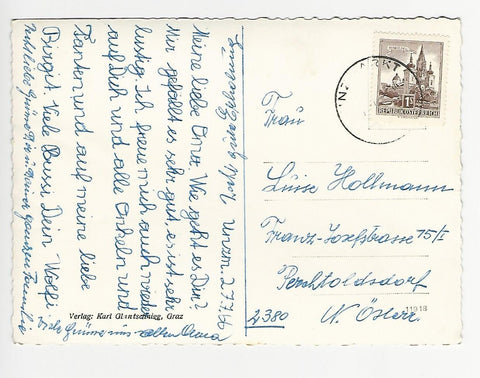 Unzm. 27.7.76
Meine liebe Oma. Wie geht es Dir?
Mir gefällt es sehr gut, es ist sehr
lustig. Ich freue mich auch wieder
auf dich und alle Onkeln und
Tanten und auf meine liebe
Birgit. Viele Bussi Dein Wolfi
Viele Grüße
gute Erholung
Verlag: Karl Glantschnig, Graz
REPUBLIK ÖSTERREICH
Frau
Luise Hollmann
Franz-Josefstrasse 75/I
Perchtoldsdorf
2380 N. Österr.
11918